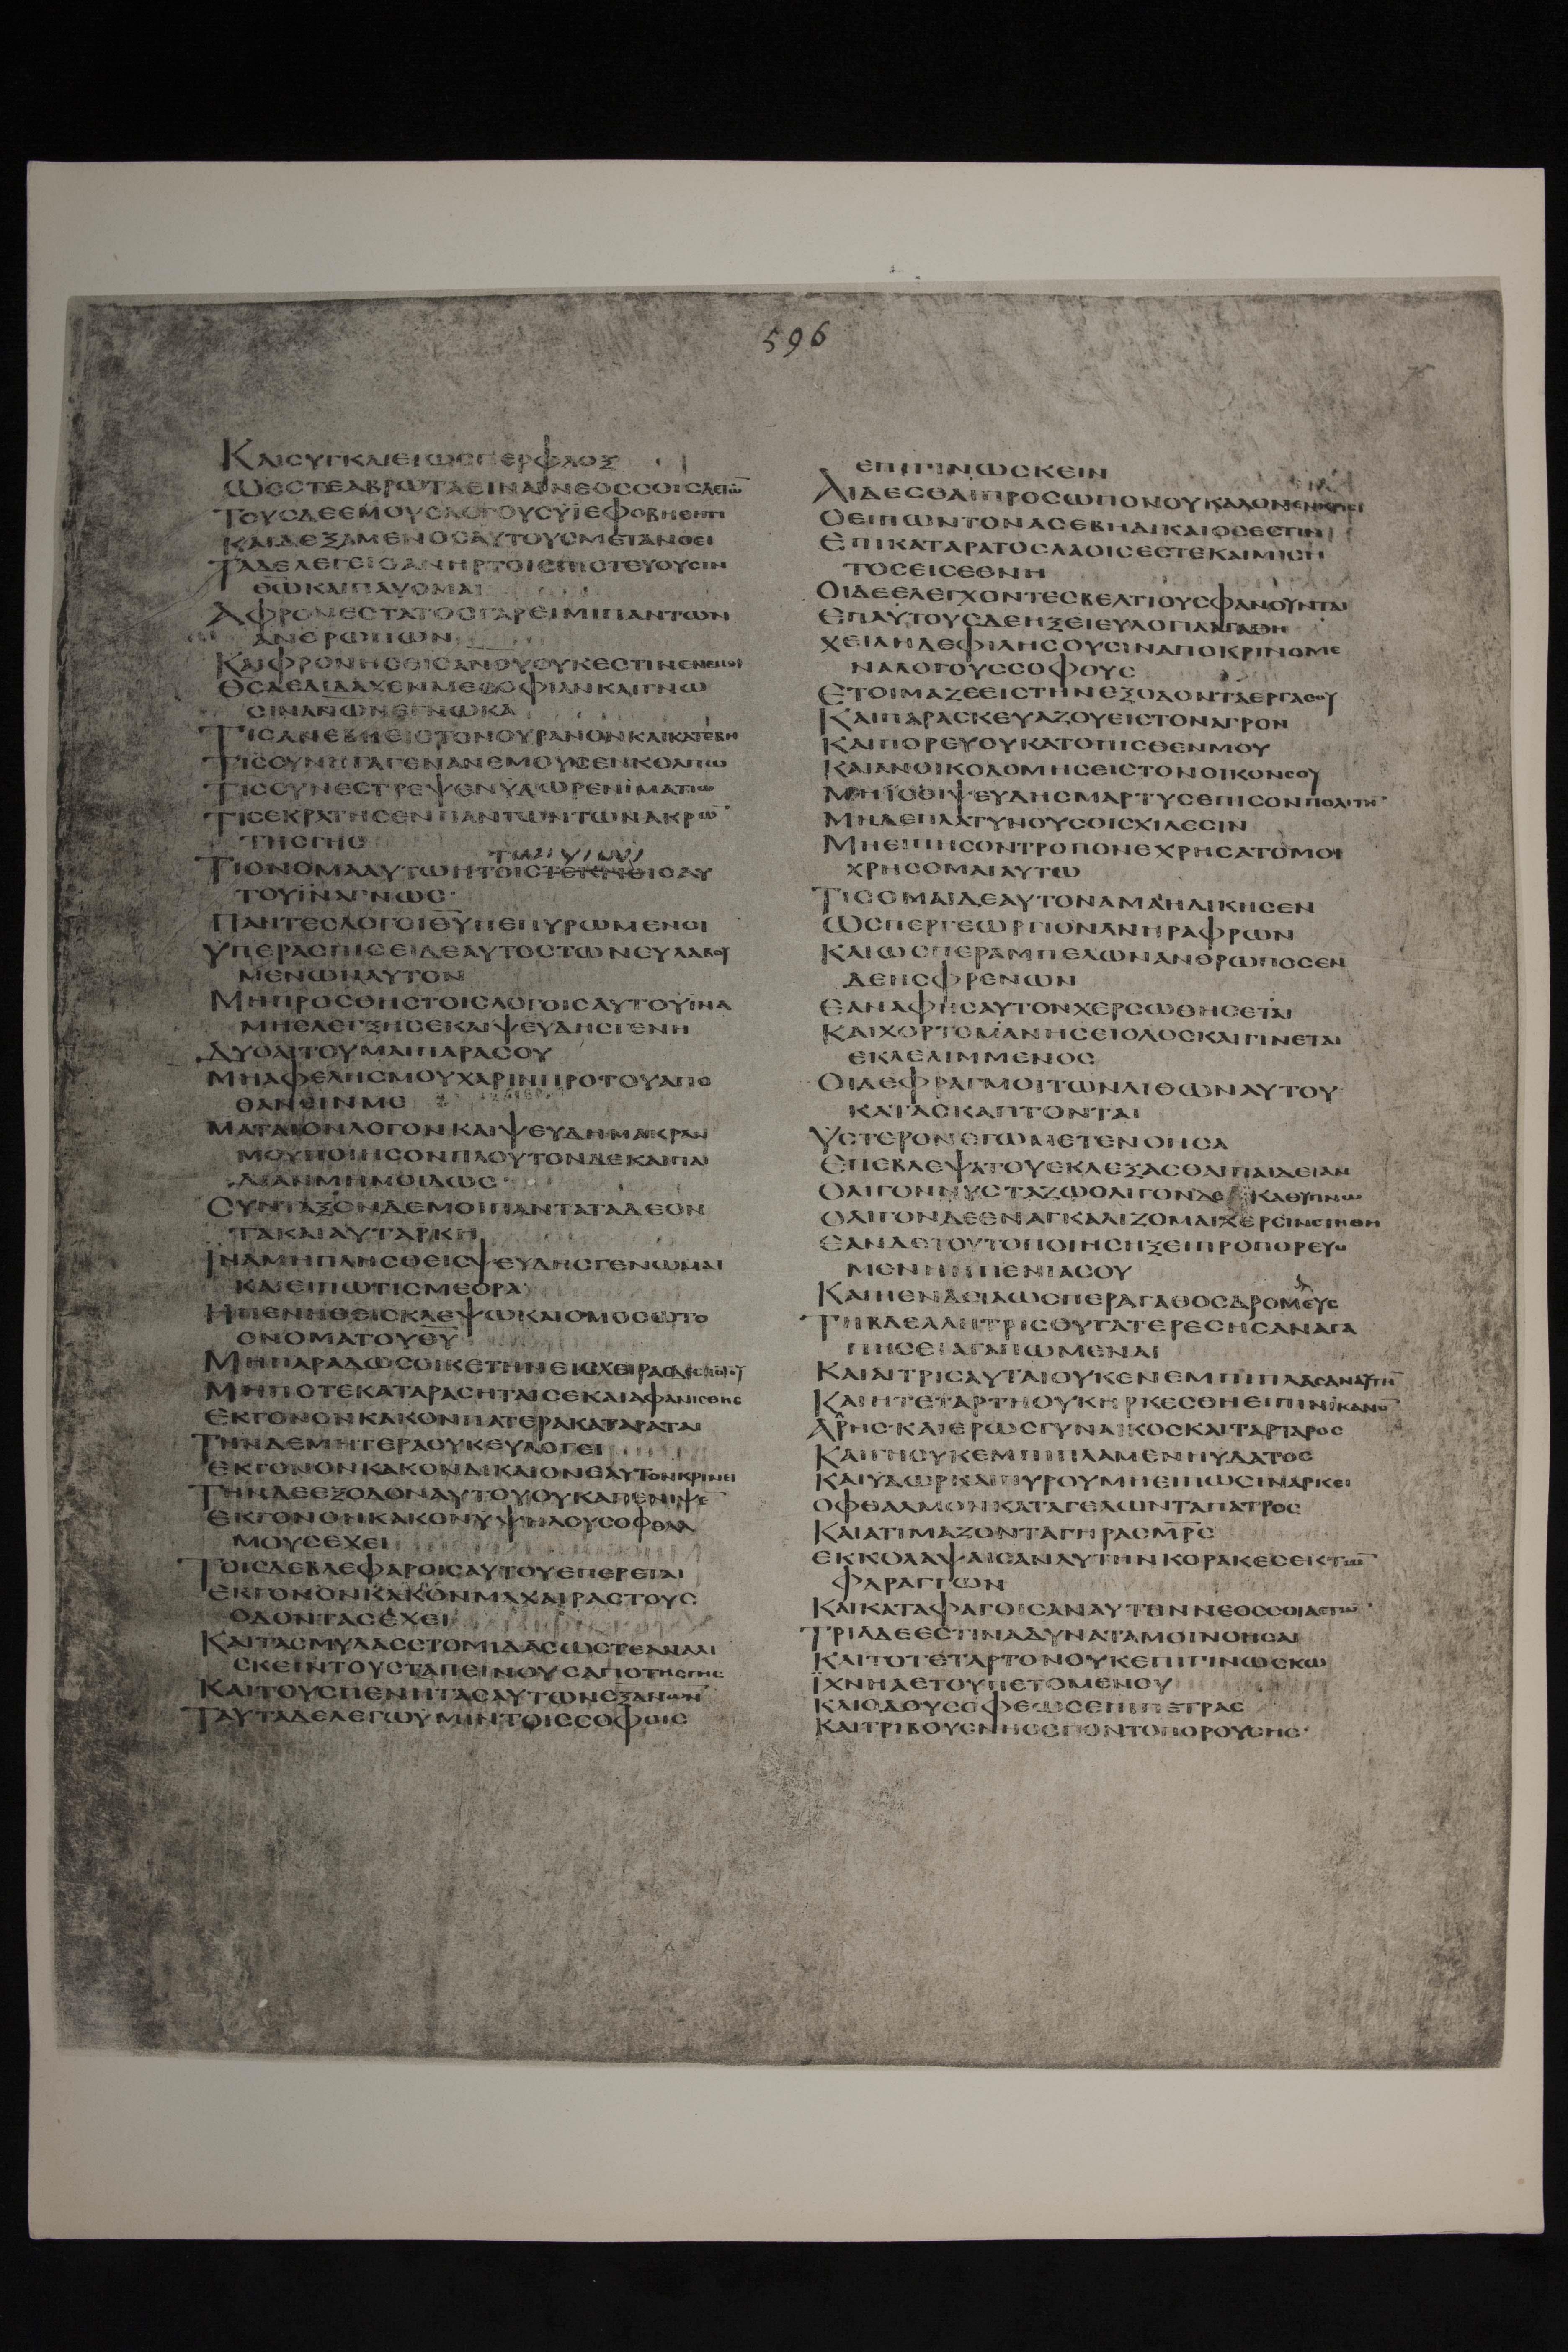 596
ΚΑΙϹΥΓΚΑΙΕΙΩϹΠΕΡΦΛΟΞ
ΩϹΤΕΑΒΡΩΤΑΕΙΝΑΙΝΕΟϹϹΟΙϹΑΕΤΩ̅
ΤΟΥϹΔΕΕΜΟΥϹΛΟΓΟΥϹΥΪΕΦΟΒΗΘΗΤΙ
ΚΑΙΔΕΞΑΜΕΝΟϹΑΥΤΟΥϹΜΕΤΑΝΟΕΙ
ΤΑΔΕΛΕΓΕΙΟΑΝΗΡΤΟΙϹΠΙϹΤΕΥΟΥϹΙΝ
Θ̅Ω̅ΚΑΙΠΑΥΟΜΑΙ
ΑΦΡΟΝΕϹΤΑΤΟϹΓΑΡΕΙΜΙΠΑΝΤΩΝ
ΑΝΘΡΩΠΩΝ
ΚΑΙΦΡΟΝΗϹΙϹΑΝΘΥΟΥΚΕϹΤΙΝΕΝΕΜΟΙ
ΘϹΔΕΔΙΔΑΧΕΝΜΕϹΟΦΙΑΝΚΑΙΓΝΩ
ϹΙΝΑΓΙΩΝΕΓΝΩΚΑ
ΤΙϹΑΝΕΒΗΕΙϹΤΟΝΟΥΡΑΝΟΝΚΑΙΚΑΤΕΒΗ
ΤΙϹϹΥΝΗΓΑΓΕΝΑΝΕΜΟΥϹΕΝΚΟΛΠΩ
ΤΙϹϹΥΝΕϹΤΡΕΨΕΝΥΔΩΡΕΝΙΜΑΤΙΩ
ΤΙϹΕΚΡΑΤΗϹΕΝΠΑΝΤΩΝΤΩΝΑΚΡΩ̅
ΤΗϹΓΗϹ
ΤΙΟΝΟΜΑΑΥΤΩΗΤΟΙϹΤΕΚΝΟΙϹΑΥ
ΤΟΥΪΝΑΓΝΩϹ
ΠΑΝΤΕϹΛΟΓΟΙΘ̅Υ̅ΠΕΠΥΡΩΜΕΝΟΙ
ΥΠΕΡΑϹΠΙϹΕΙΔΕΑΥΤΟϹΤΩΝΕΥΛΑΒΟΥ
ΜΕΝΩΝΑΥΤΟΝ
ΜΗΠΡΟϹΘΗϹΤΟΙϹΛΟΓΟΙϹΑΥΤΟΥΪΝΑ
ΜΗΕΛΕΓΞΗϹΕΚΑΙΨΕΥΔΗϹΓΕΝΗ
ΔΥΟΑΙΤΟΥΜΑΙΠΑΡΑϹΟΥ
ΜΗΑΦΕΛΗϹΜΟΥΧΑΡΙΝΠΡΟΤΟΥΑΠΟ
ΘΑΝΕΙΝΜΕ
ΜΑΤΑΙΟΝΛΟΓΟΝΚΑΙΨΕΥΔΗΜΑΚΡΑΝ
ΜΟΥΠΟΙΗϹΟΝΠΛΟΥΤΟΝΔΕΚΑΙΠΕ
ΝΙΑΝΜΗΜΟΙΔΩϹ
ϹΥΝΤΑΞΟΝΔΕΜΟΙΠΑΝΤΑΤΑΔΕΟΝ
ΤΑΚΑΙΑΥΤΑΡΚΗ
ΪΝΑΜΗΠΛΗϹΘΕΙϹΨΕΥΔΗϹΓΕΝΩΜΑΙ
ΚΑΙΕΙΠΩΤΙϹΜΕΟΡΑ
ΗΠΕΝΗΘΕΙϹΚΛΕΨΩΚΑΙΟΜΟϹΩΤΟ
ΟΝΟΜΑΤΟΥΘ̅Υ̅
ΜΗΠΑΡΑΔΩϹΟΙΚΕΤΗΝΕΙϹΧΕΙΡΑϹΔΕϹΠΟΤΟΥ
ΜΗΠΟΤΕΚΑΤΑΡΑϹΗΤΑΙϹΕΚΑΙΑΦΑΝΙϹΘΗϹ
ΕΚΓΟΝΟΝΚΑΚΟΝΠΑΤΕΡΑΚΑΤΑΡΑΤΑΙ
ΤΗΝΔΕΜΗΤΕΡΑΟΥΚΕΥΛΟΓΕΙ
ΕΚΓΟΝΟΝΚΑΚΟΝΔΙΚΑΙΟΝΕΑΥΤΟΝΚΡΙΝΕΙ
ΤΗΝΔΕΕΞΟΔΟΝΑΥΤΟΥΟΥΚΑΠΕΝΙΨΕ̅
ΕΚΓΟΝΟΝΚΑΚΟΝΥΨΗΛΟΥϹΟΦΘΑΛ
ΜΟΥϹΕΧΕΙ
ΤΟΙϹΔΕΒΛΕΦΑΡΟΙϹΑΥΤΟΥΕΠΕΡΕΤΑΙ
ΕΚΓΟΝΟΝΚΑΚΟΝΜΑΧΑΙΡΑϹΤΟΥϹ
ΟΔΟΝΤΑϹΕΧΕΙ
ΚΑΙΤΑϹΜΥΛΑϹϹΤΟΜΙΔΑϹΩϹΤΕΑΝΑΛΙ
ϹΚΕΙΝΤΟΥϹΤΑΠΕΙΝΟΥϹΑΠΟΤΗϹΓΗϹ
ΚΑΙΤΟΥϹΠΕΝΗΤΑϹΑΥΤΩΝΕΞΑΝΩΝ
ΤΑΥΤΑΔΕΛΕΓΩΥΜΙΝΤΟΙϹϹΟΦΟΙϹ
ΕΠΙΓΙΝΩϹΚΕΙΝ
ΑΙΔΕΙϹΘΑΙΠΡΟϹΩΠΟΝΟΥΚΑΛΟΝΕΝΚΡΙϹΕΙ
ΟΕΙΠΩΝΤΟΝΑϹΕΒΗΔΙΚΑΙΟϹΕϹΤΙΝ
ΕΠΙΚΑΤΑΡΑΤΟϹΛΑΟΙϹΕϹΤΕΚΑΙΜΙϹΗ
ΤΟϹΕΙϹΕΘΝΗ
ΟΙΔΕΕΛΕΓΧΟΝΤΕϹΒΕΛΤΙΟΥϹΦΑΝΟΥΝΤΑΙ
ΕΠΑΥΤΟΥϹΔΕΗΞΕΙΕΥΛΟΓΙΑΑΓΑΘΗ
ΧΕΙΛΗΔΕΦΙΛΗϹΟΥϹΙΝΑΠΟΚΡΙΝΟΜΕ
ΝΑΛΟΓΟΥϹϹΟΦΟΥϹ
ΕΤΟΙΜΑΖΕΕΙϹΤΗΝΕΞΟΔΟΝΤΑΕΡΓΑϹΟΥ
ΚΑΙΠΑΡΑϹΚΕΥΑΖΟΥΕΙϹΤΟΝΑΓΡΟΝ
ΚΑΙΠΟΡΕΥΟΥΚΑΤΟΠΙϹΘΕΝΜΟΥ
ΚΑΙΑΝΟΙΚΟΔΟΜΗϹΕΙϹΤΟΝΟΙΚΟΝϹΟΥ
ΜΗΪϹΘΙΨΕΥΔΗϹΜΑΡΤΥϹΕΠΙϹΟΝΠΟΛΙΤΗ̅
ΜΗΔΕΠΛΑΤΥΝΟΥϹΟΙϹΧΙΛΕϹΙΝ
ΜΗΕΙΠΗϹΟΝΤΡΟΠΟΝΕΧΡΗϹΑΤΟΜΟΙ
ΧΡΗϹΟΜΑΙΑΥΤΩ
ΤΙϹΟΜΑΙΔΕΑΥΤΟΝΑΜΕΗΔΙΚΗϹΕΝ
ΩϹΠΕΡΓΕΩΡΓΙΟΝΑΝΗΡΑΦΡΩΝ
ΚΑΙΩϹΠΕΡΑΜΠΕΛΩΝΑΝΘΡΩΠΟϹΕΝ
ΔΕΗϹΦΡΕΝΩΝ
ΕΑΝΑΦΗϹΑΥΤΟΝΧΕΡϹΩΘΗϹΕΤΑΙ
ΚΑΙΧΟΡΤΟΜΑΝΗϹΕΙΟΛΟϹΚΑΙΓΙΝΕΤΑΙ
ΕΚΛΕΛΙΜΜΕΝΟϹ
ΟΙΔΕΦΡΑΓΜΟΙΤΩΝΛΙΘΩΝΑΥΤΟΥ
ΚΑΤΑϹΚΑΠΤΟΝΤΑΙ
ΥϹΤΕΡΟΝΕΓΩΜΕΤΕΝΟΗϹΑ
ΕΠΕΒΛΕΨΑΤΟΥΕΚΛΕΞΑϹΘΑΙΠΑΙΔΕΙΑΝ
ΟΛΙΓΟΝΝΥϹΤΑΖΩΟΛΙΓΟΝΔΕΚΑΘΥΠΝΩ
ΟΛΙΓΟΝΔΕΕΝΑΓΚΑΛΙΖΟΜΑΙΧΕΡϹΙΝϹΤΗΘΗ
ΕΑΝΔΕΤΟΥΤΟΠΟΙΗϹΗΞΕΙΠΡΟΠΟΡΕΥΟ
ΜΕΝΗΗΠΕΝΙΑϹΟΥ
ΚΑΙΗΕΝΔΕΙΑΩϹΠΕΡΑΓΑΘΟϹΔΡΟΜΕΥϹ
ΤΗΒΔΕΛΛΗΤΡΙϹΘΥΓΑΤΕΡΕϹΗϹΑΝΑΓΑ
ΠΗϹΕΙΑΓΑΠΩΜΕΝΑΙ
ΚΑΙΑΙΤΡΙϹΑΥΤΑΙΟΥΚΕΝΕΜΠΙΠΛΑϹΑΝΑΥΤΗ̅
ΚΑΙΗΤΕΤΑΡΤΗΟΥΚΗΡΚΕϹΘΗΕΙΠΙΝΪΚΑΝΟ̅
ΑΔΗϹΚΑΙΕΡΩϹΓΥΝΑΙΚΟϹΚΑΙΤΑΡΤΑΡΟϹ
ΚΑΙΓΗΟΥΚΕΜΠΙΠΛΑΜΕΝΗΥΔΑΤΟϹ
ΚΑΙΥΔΩΡΚΑΙΠΥΡΟΥΜΗΕΙΠΩϹΙΝΑΡΚΕΙ
ΟΦΘΑΛΜΟΝΚΑΤΑΓΕΛΩΝΤΑΠΑΤΡΟϹ
ΚΑΙΑΤΙΜΑΖΟΝΤΑΓΗΡΑϹΜ̅Ρ̅Ϲ̅
ΕΚΚΟΛΑΨΑΙϹΑΝΑΥΤΗΝΚΟΡΑΚΕϹΕΚΤΩ̅
ΦΑΡΑΓΓΩΝ
ΚΑΙΚΑΤΑΦΑΓΟΙϹΑΝΑΥΤΗΝΝΕΟϹϹΟΙΑΕΤΩ̅
ΤΡΙΑΔΕΕϹΤΙΝΑΔΥΝΑΤΑΜΟΙΝΟΗϹΑΙ
ΚΑΙΤΟΤΕΤΑΡΤΟΝΟΥΚΕΠΙΓΙΝΩϹΚΩ
ΪΧΝΗΑΕΤΟΥΠΕΤΟΜΕΝΟΥ
ΚΑΙΟΔΟΥϹΟΦΕΩϹΕΠΙΠΕΤΡΑϹ
ΚΑΙΤΡΙΒΟΥϹΝΗΟϹΠΟΝΤΟΠΟΡΟΥϹΗϹ